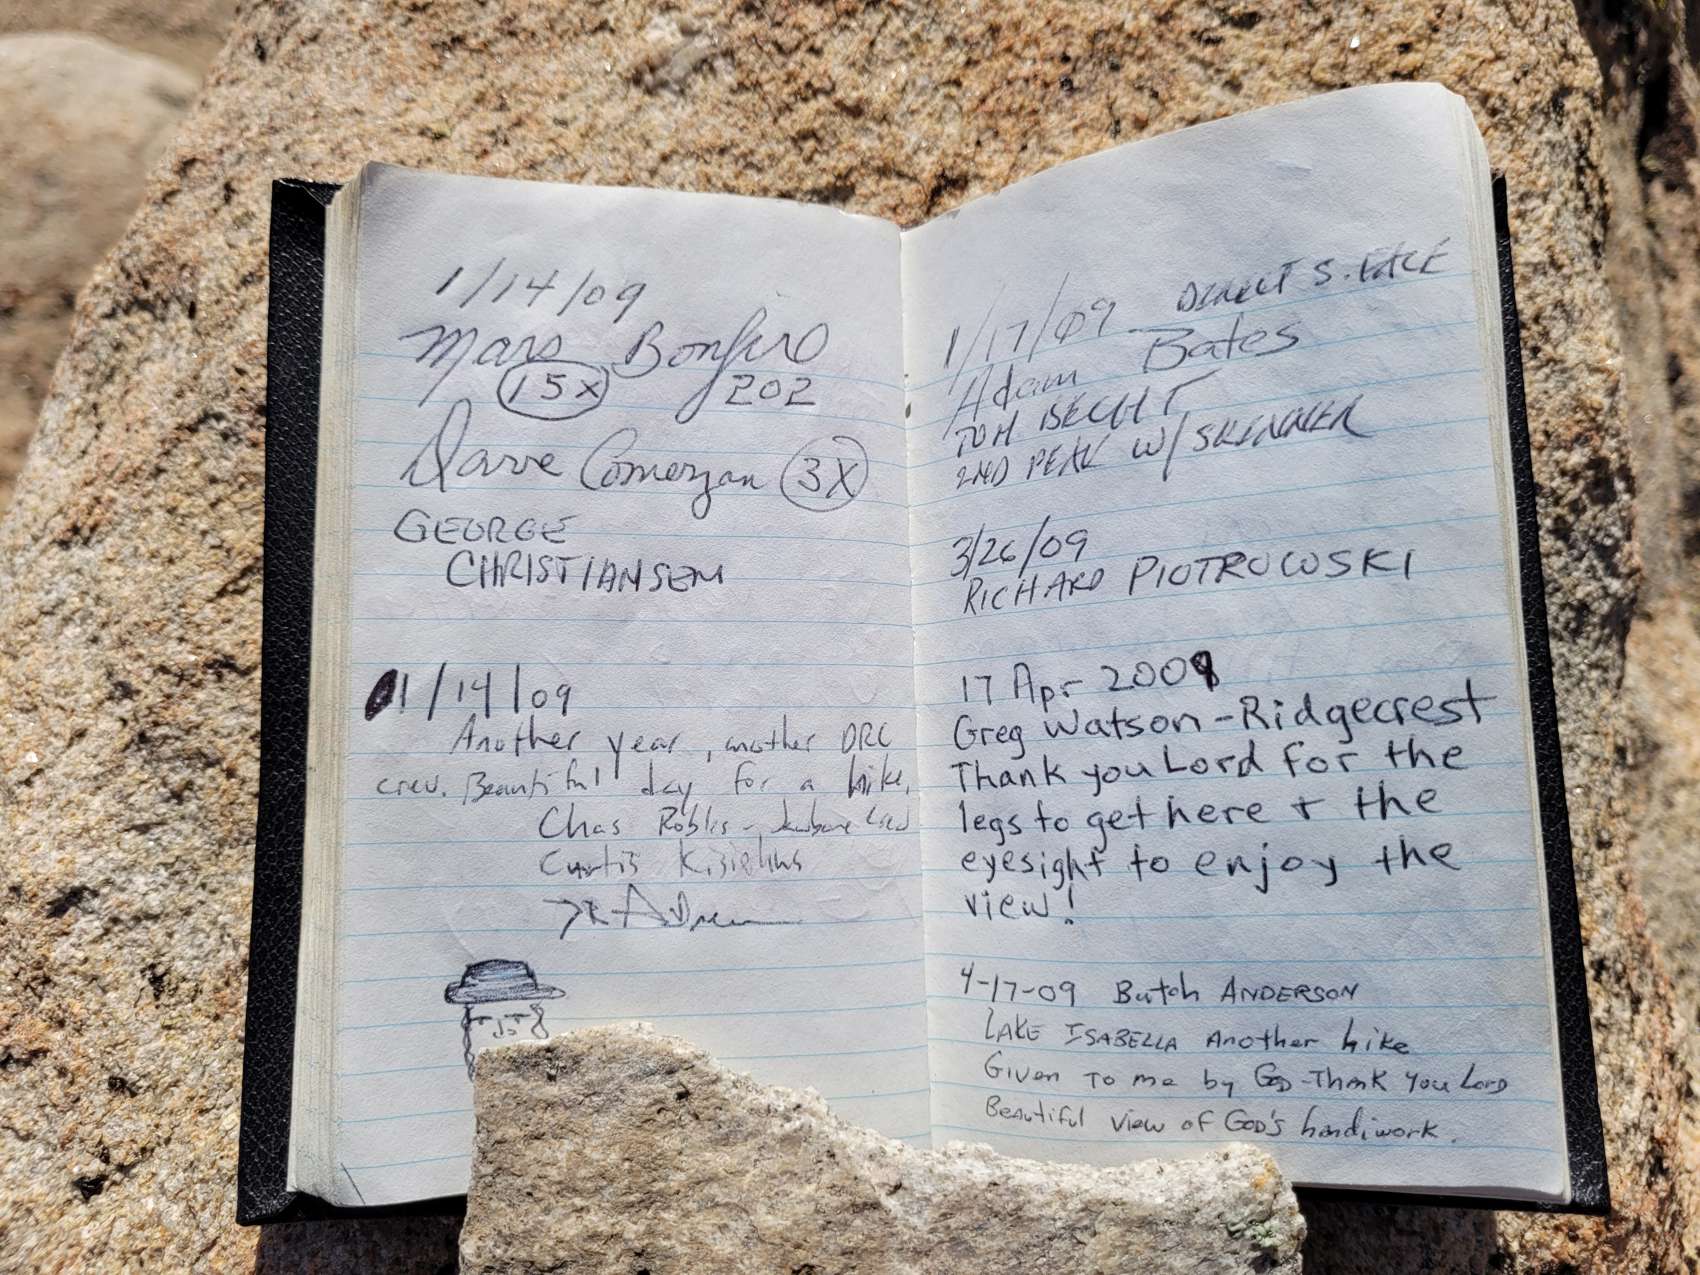 1/14/09
Mars Bonfire
15X 202
Dave Comerzan 3X
GEORGE
CHRISTIANSEN
1/14/09
Another year, another DRC
crew. Beautiful day for a hike.
Chas Robles -
Curtis
1/17/09 DIRECT S. FACE
Adam Bates
TOM BECHT
2ND PEAK W/ SKINNER
3/26/09
RICHARD PIOTROWSKI
17 Apr 2009
Greg Watson - Ridgecrest
Thank you Lord for the
legs to get here + the
eyesight to enjoy the
view!
4-17-09 Butch ANDERSON
LAKE ISABELLA Another hike
Given To me by GOD - Thank You Lord
Beautiful view of GOD'S handiwork.